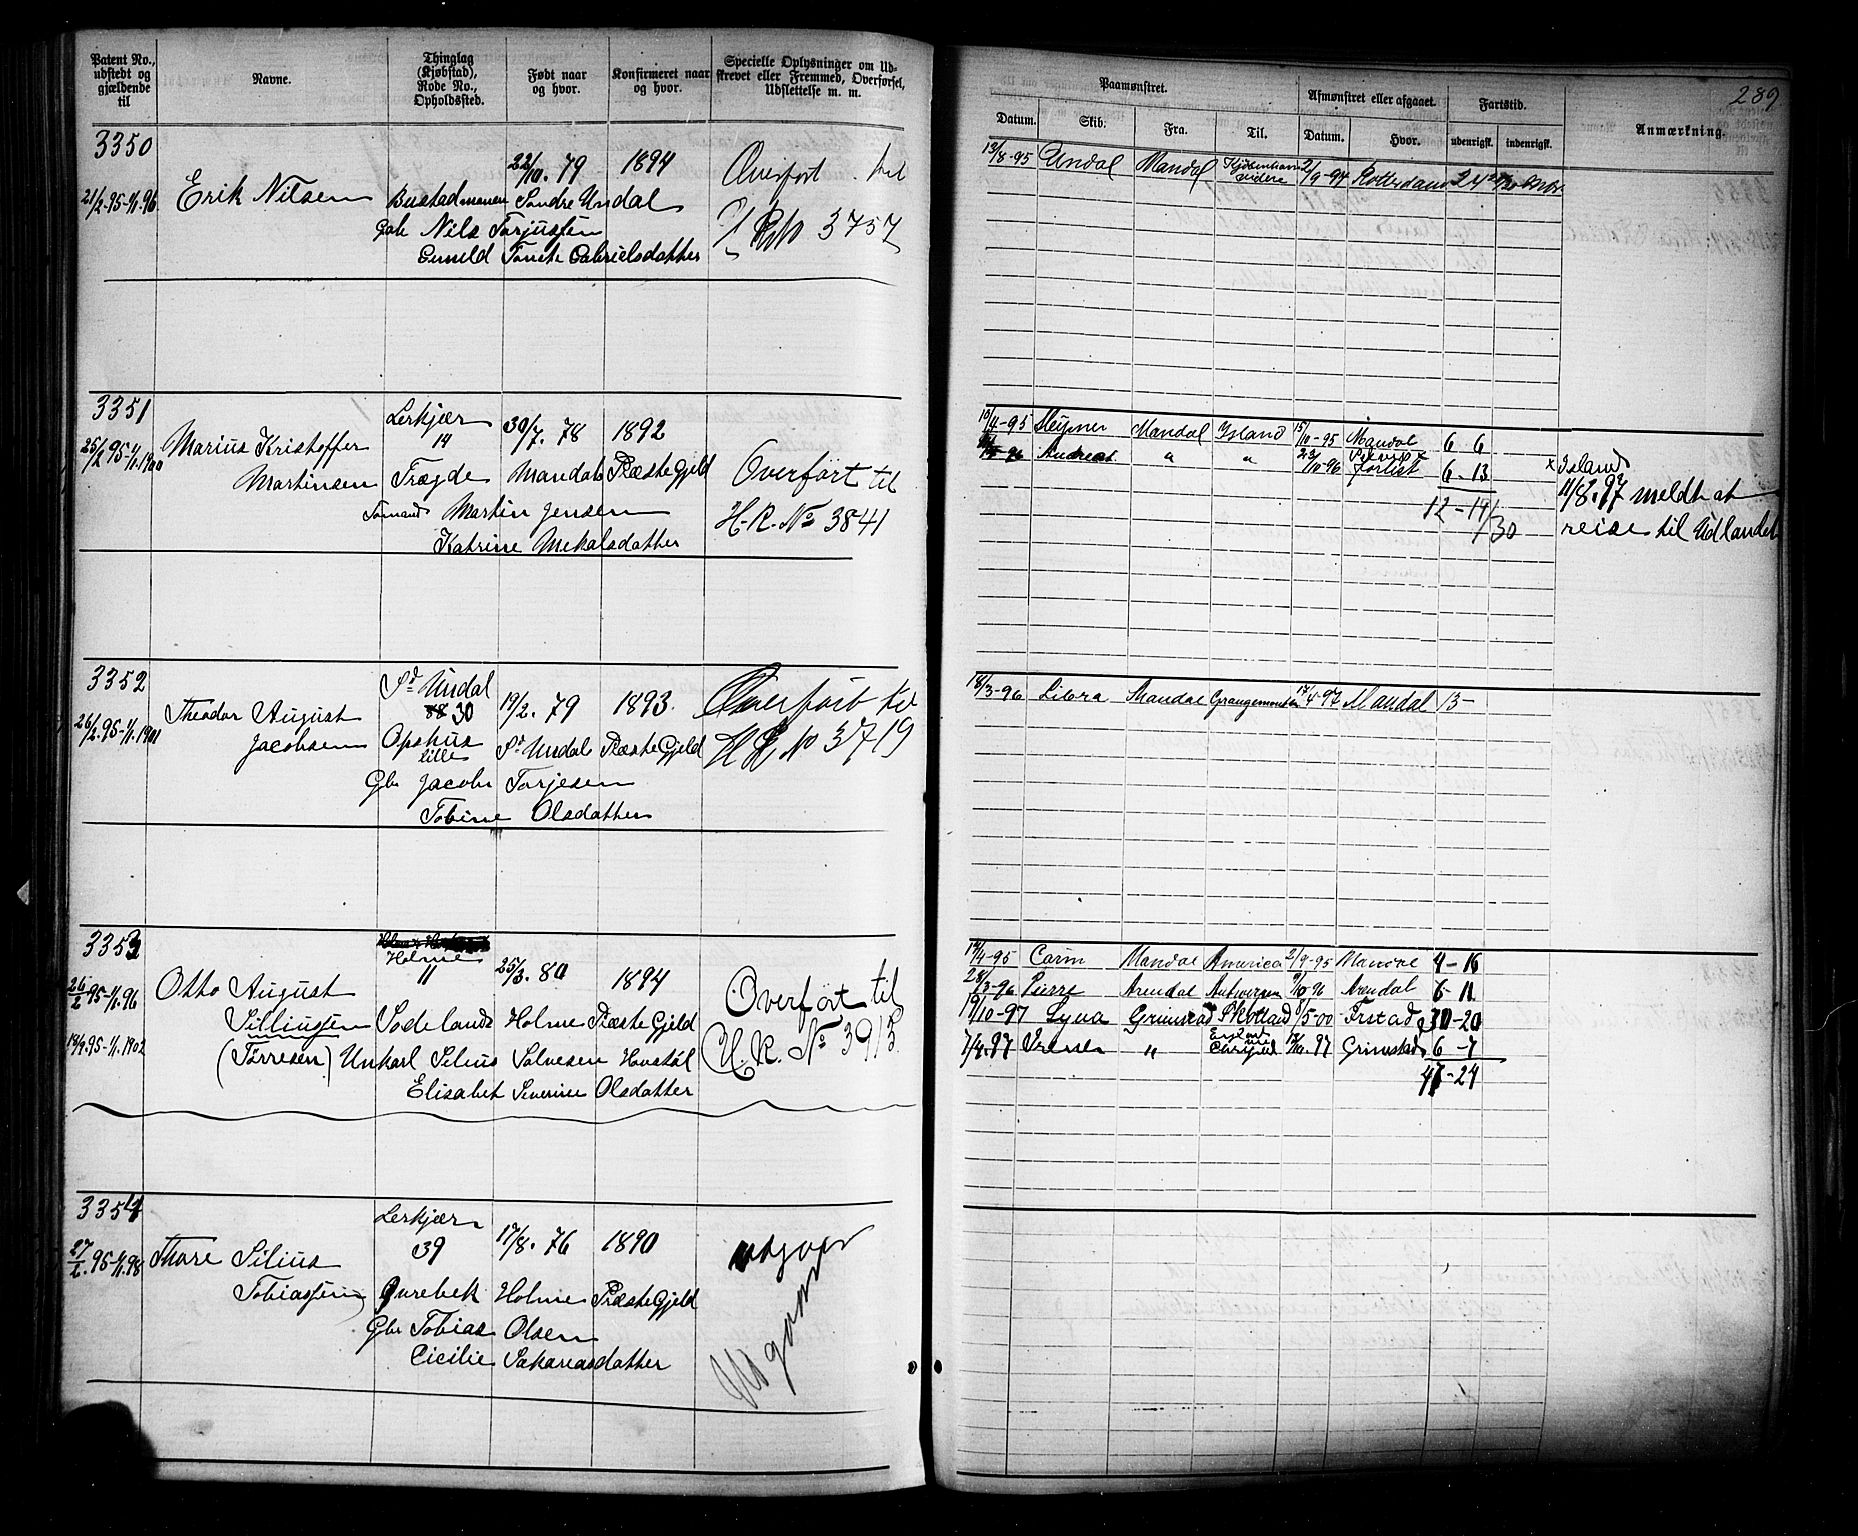 Patent No., udstedt og gjældende til
Navne.
Thinglag (Kjøbstad), Rode No., Opholdssted.
Født naar og hvor.
Konfirmeret naar og hvor.
Specielle Oplysninger om Udskrevet eller Fremmed, Overførsel, Udslettelse m. m.
3350
21/2.95-1/1.96 Erik Nilsen
22/10.79 1894
Bustad Sondre Undal
Nils Torjussen
Gunild Tonete Gabrielsdatter
Overført til
3757
3351
25/2.95-1/1.1900 Marius Kristoffer
Martinsen
Lerkjær
14
30/7.78 1892
Trægde Mandals PræsteGjeld
Martin Jensen
Katrine Mekalsdatter
Overført til
H.R. No 3841
3352
26/2.95-1/1.1901 Theodor August
Jacobsen
Sd Undal
30
19/2.79 1893.
Opshus
lille
Sd Undals PræsteGjeld
Gbr Jacob Torjesen
Tobine Olsdatter
Overført til
H R No 3719
3353
26/2 95-1/1.96
19/9.95-1/1.1902
Otto August
Silliussen
(Tørresen)
Holme
11
25/3.80 1894
Sodeland Holme PræsteGjeld
Unkarl Silius Salvesen
Elisabet Severine Olsdatter
Overført til
H.R. No 3913
3354
27/2.95-1/1.98 Thore Silius
Tobiassen
Lerkjær
39
17/8.76 1890
Holme PræsteGjeld
Gbr Tobias Olsen
Cicilie Sakariasdatter
udgaar
289
Paamønstret.
Afmønstret eller afgaaet.
Fartstid.
Anmærkning.
Datum. Skib. Fra. Til. Datum. Hvor. udenrigsk. indenrigsk.
13/8-95 Undal Mandal Kjøbenhavn videre 2/9-97 Rotterdam
10/4-95 Mandal Island 15/10-95 Mandal 6 6
96 Andreas " " 23/10-96 forlist 6-13
12-19/30
x Island
11/8.97 meldt at
reise til Udlandet
18/3-96 Libra Mandal Grangemouth 17/4-97 Mandal 13-
17/4-95 Carin Mandal America 2/9-95 Mandal 4-16
28/3-96 Pierre Arendal Antwerpen Arendal 6-11
19/10-97 Lyna Grimstad Skotland /5-00 30-20
7/4.97 " England Grimstad 6-7
47-24